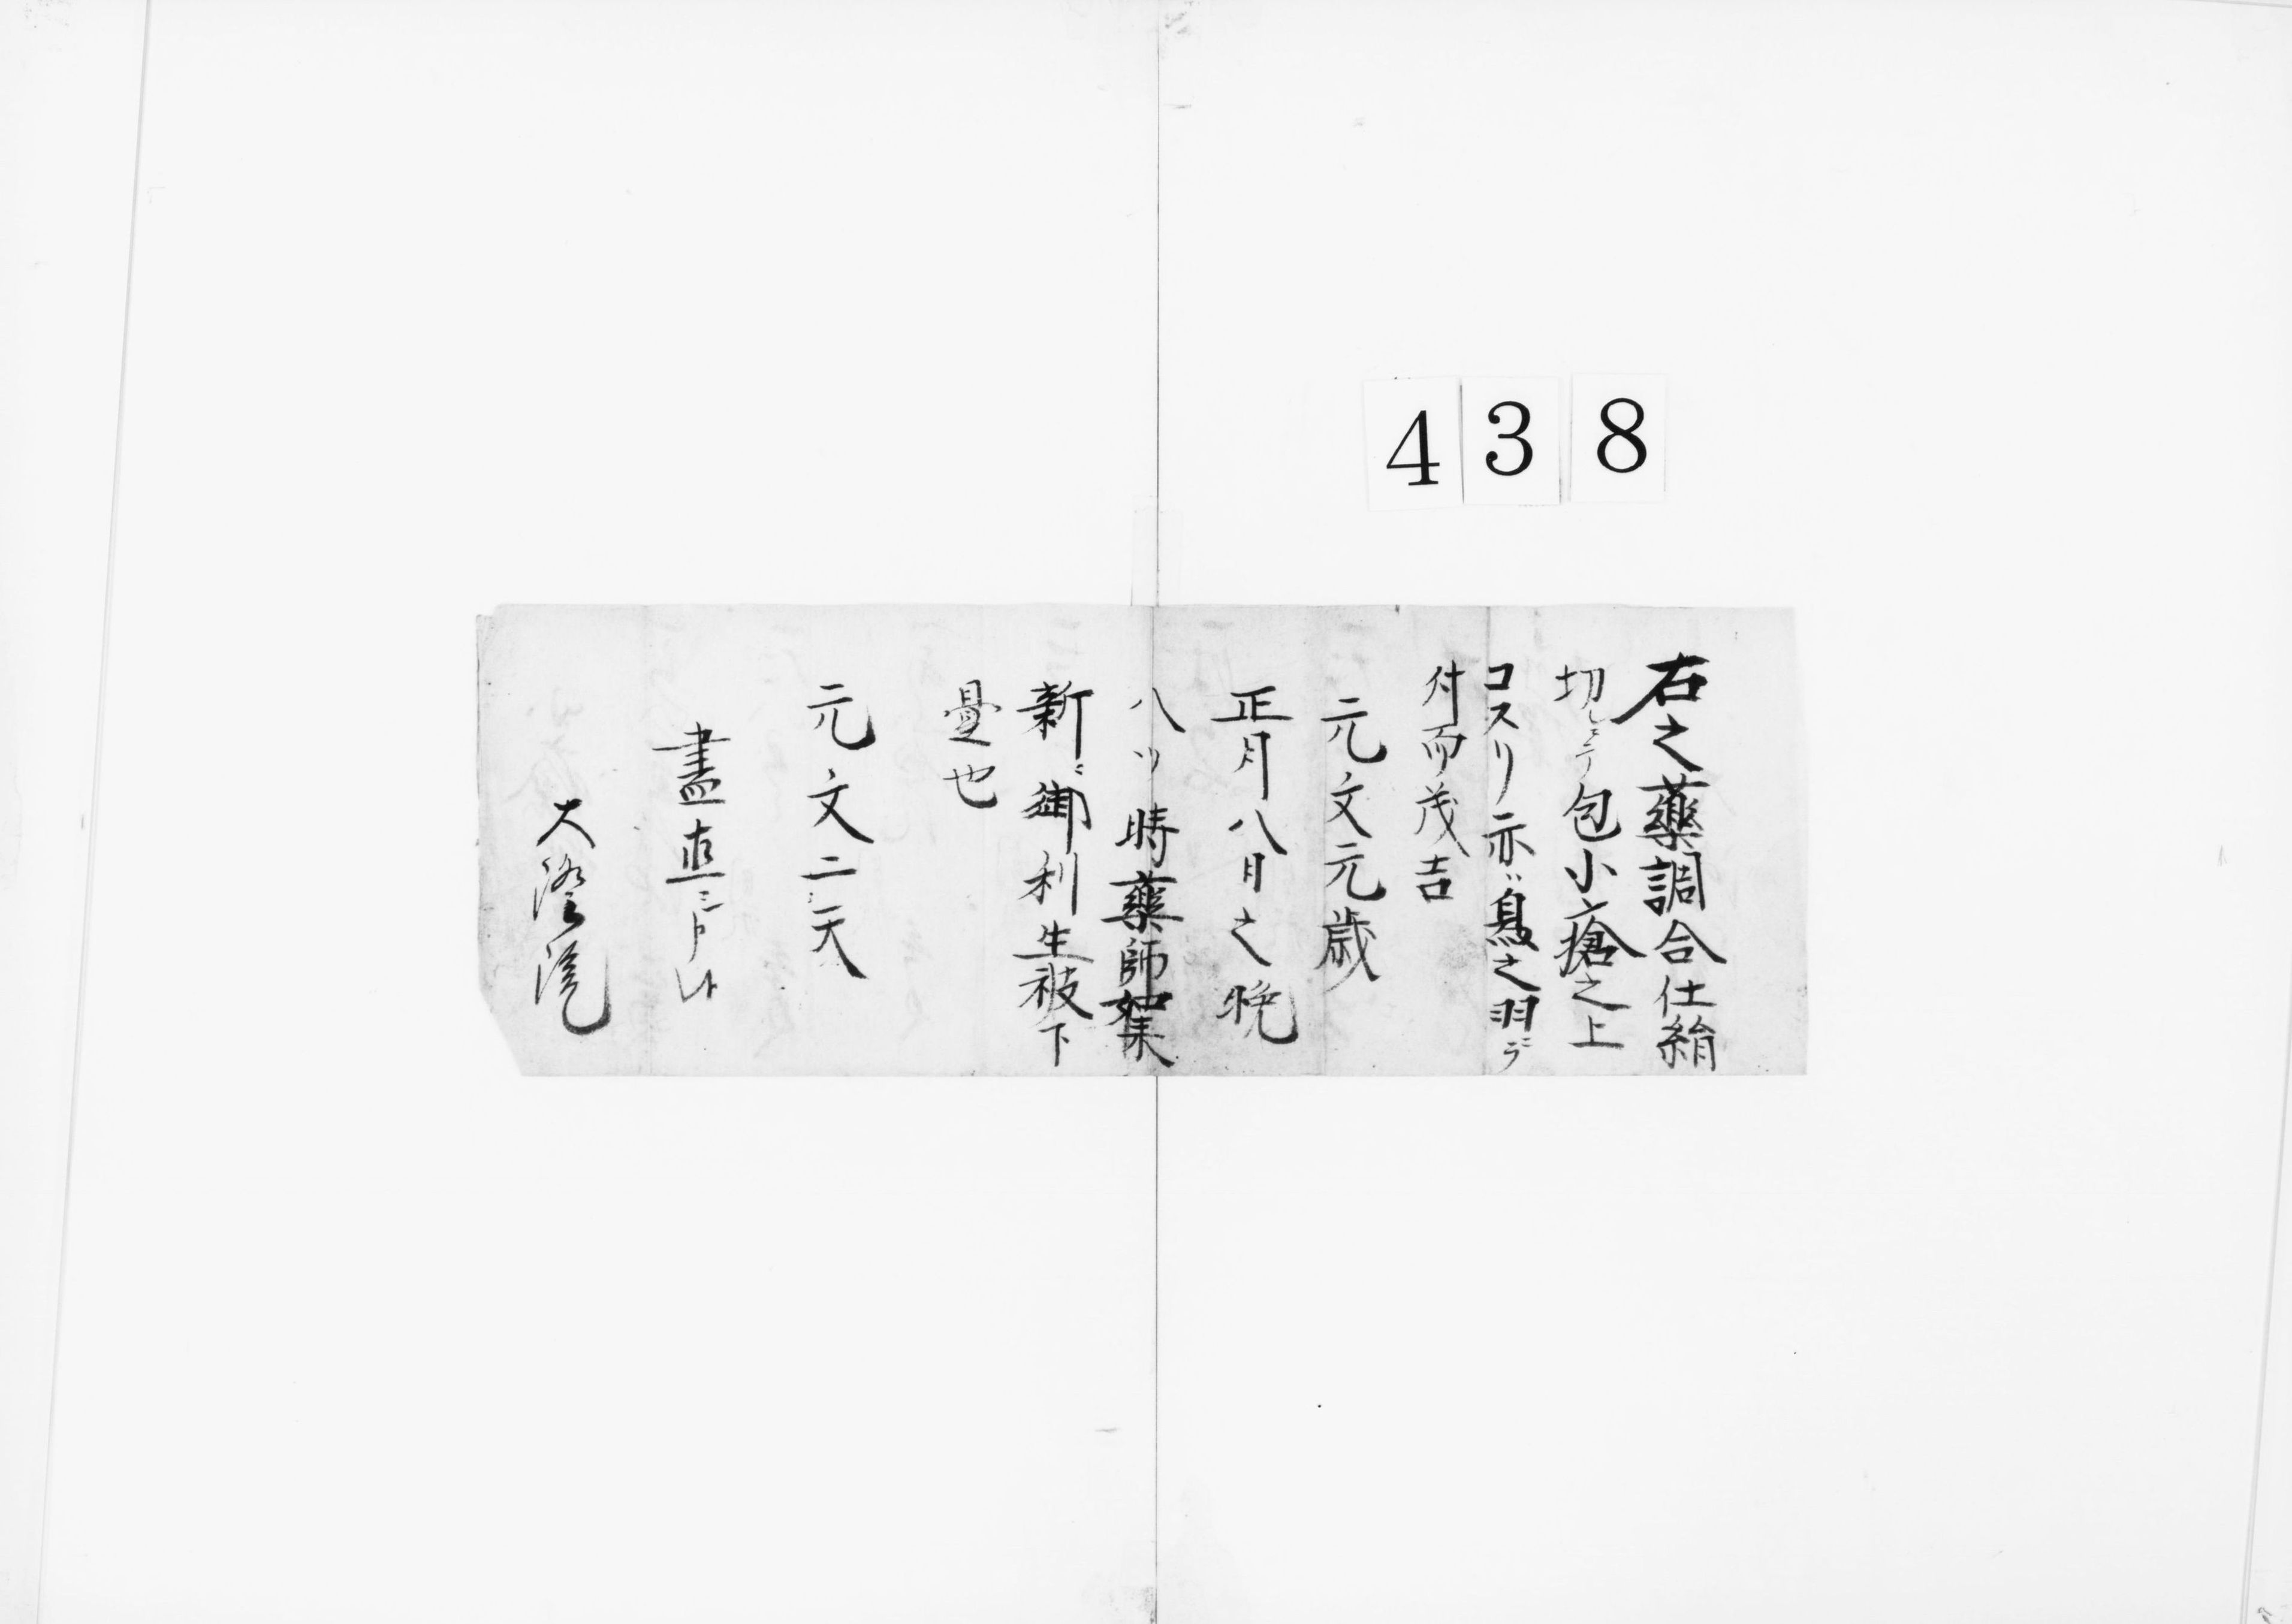 438
右之藥調合仕絹
切ニテ包小瘡之上
コスリ亦ハ鳥之羽ニテ
付而茂吉
元文元歳
正月八日之晩
八ッ時藥師如来
新ニ御利生被下
置也
元文二天
大